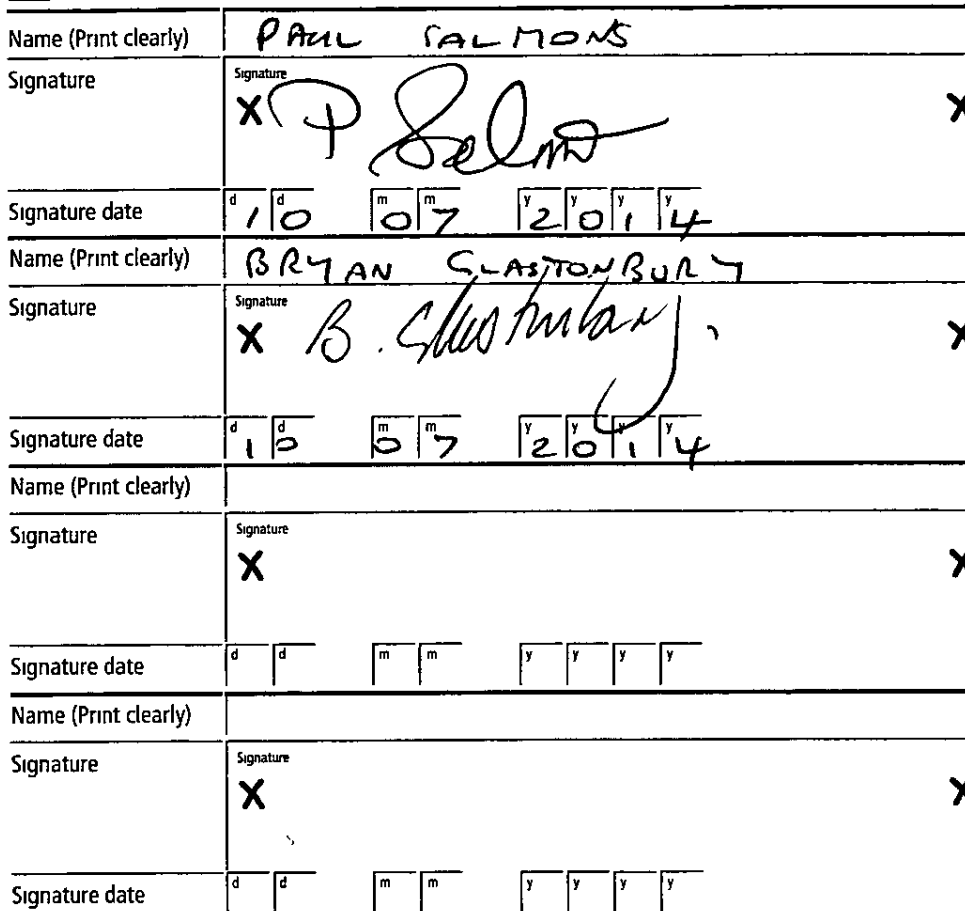 Name (Print clearly) PAUL SALMONS
Signature Signature
X P Salmo X
Signature date d 1 d 0 m 0 m 7 y 2 y 0 y 1 y 4
Name (Print clearly) BRYAN GLASTONBURY
Signature Signature
X B. Glastonbury X
Signature date d 1 d 0 m 0 m 7 y 2 y 0 y 1 y 4
Name (Print clearly)
Signature Signature
X X
Signature date d d m m y y y y
Name (Print clearly)
Signature Signature
X X
Signature date d d m m y y y y